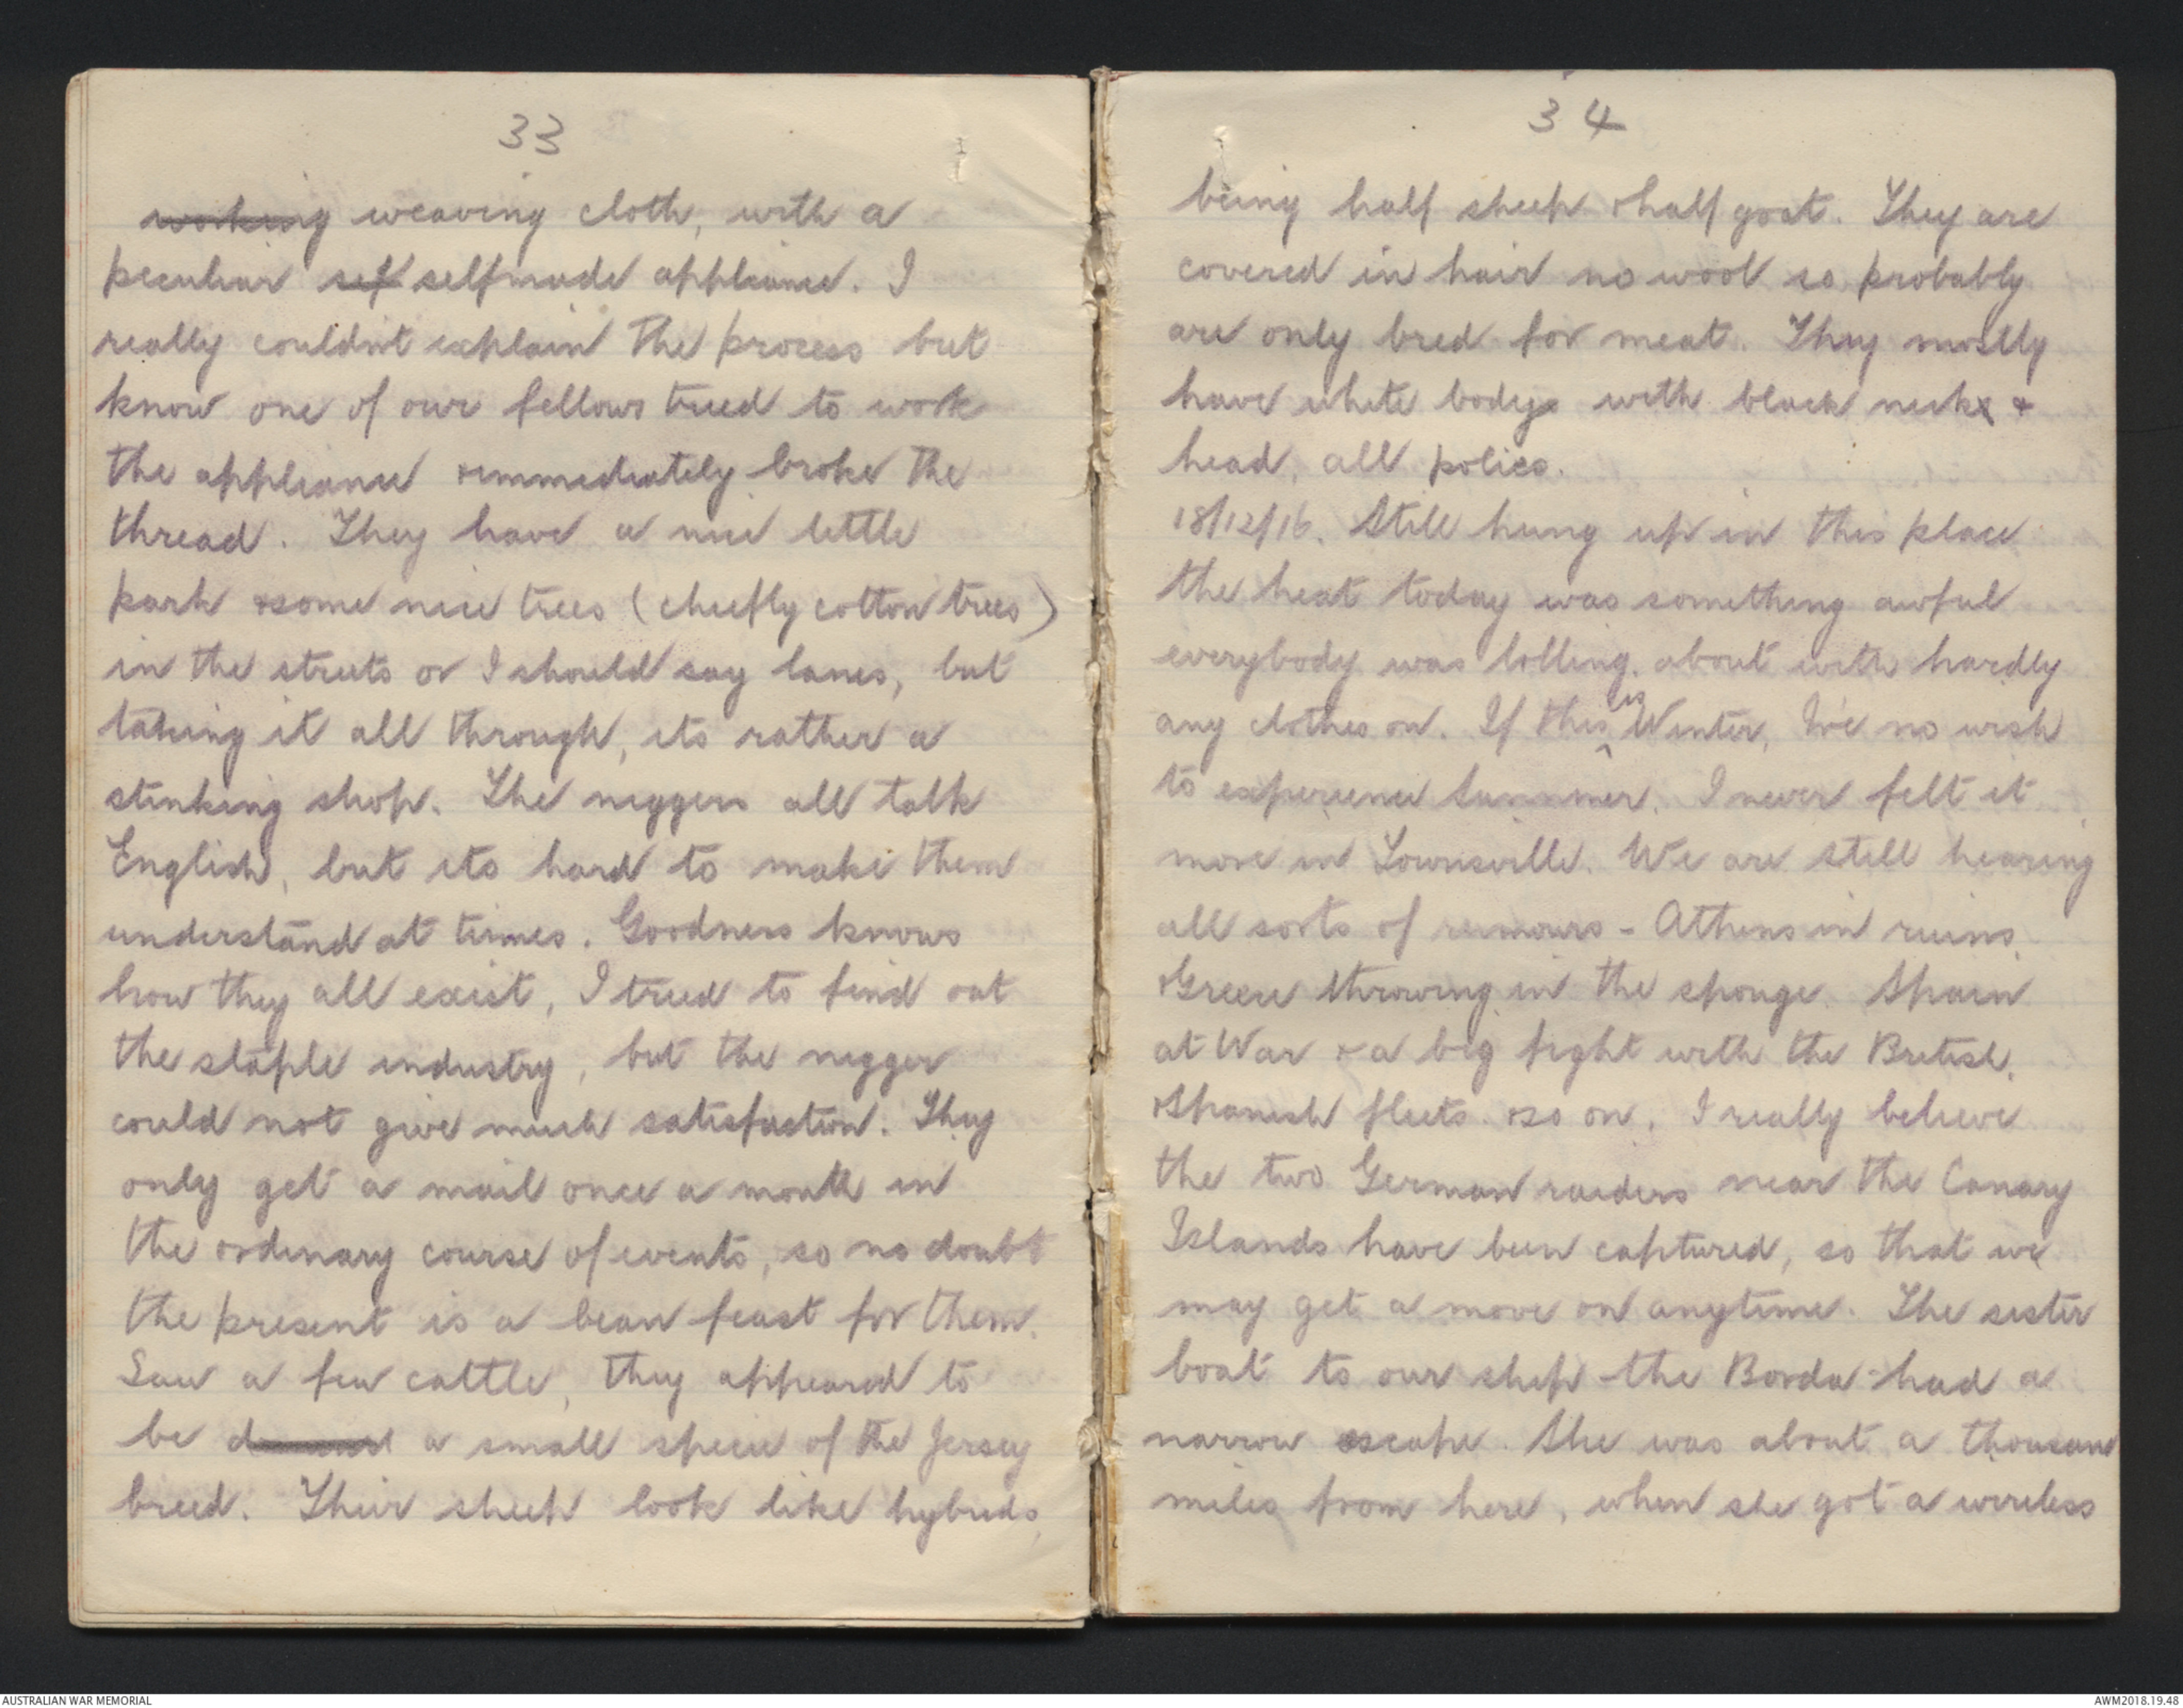 33
working weaving cloth, with a
peculiar sef selfmade appliance. I
really couldnt explain the process but
know one of our fellows tried to work
the appliance & immediately broke the
thread. They have a nice little
park & some nice trees (cheefly cotton trees)
in the streets or I should say lanes, but
taking it all through, its rather a
stinking shop. The niggers all talk
English, but its hard to make them
understand at times. Goodness knows
how they all exist, I tried to find out
the staple industry, but the nigger
could not give much satisfaction. They
only get a mail once a month in
the ordinary course of events, so no doubt
the present is a bean feast for them.
Saw a few cattle, they appeared to
be a small specie of the Jersey
breed. Their sheep look like hybrids,
34
being half sheep & half goat. They are
covered in hair no wool so probably
are only bred for meat. They mostly
have white bodys with black neck &
head, all polies.
18/12/16. Still hung up in this place
the heat today was something awful
everybody was lolling about with hardly
any clothes on. If this is Winter, Ive no wish
to experience Summer. I never felt it
more in Townsville. We are still hearing
all sorts of rumours - Athens in ruins
& Greece throwing in the sponge. Spain
at War & a big fight with the British,
& Spanish fleets & so on. I really believe
the two German raiders near the Canary
Islands have been captured, so that we
may get a move on anytime. The sister
boat to our ship - the Borda - had a
narrow escape. She was about a thousand
miles from here, when she got a wireless
AUSTRALIAN WAR MEMORIAL
AWM2018.19.48